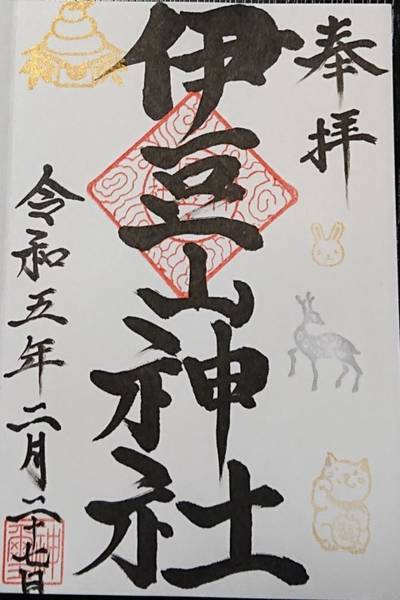 奉拝
伊豆山神社
令和五年二月二十七日